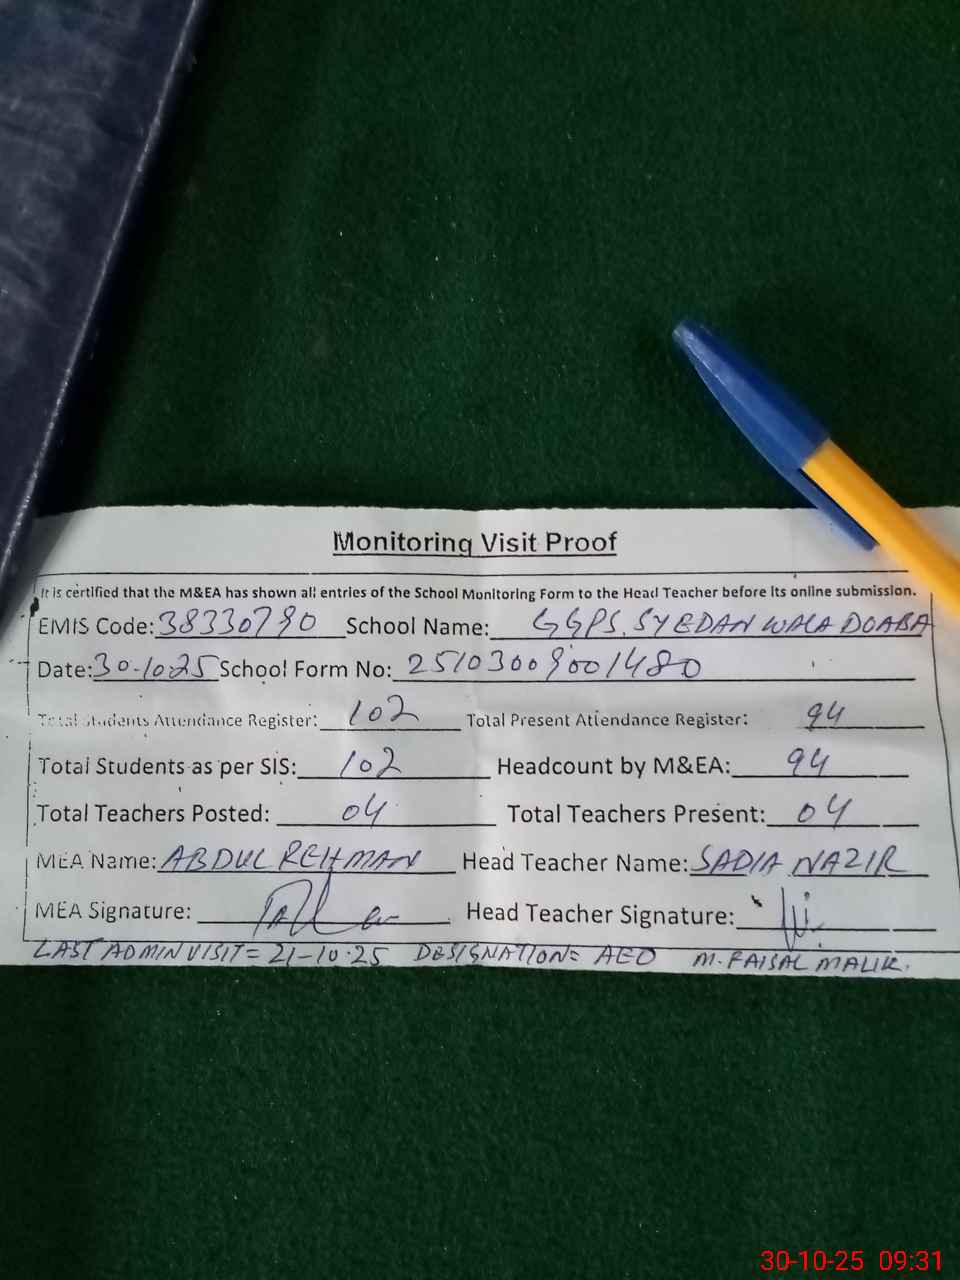 Monitoring Visit Proof
It is certified that the M&EA has shown all entries of the School Monitoring Form to the Head Teacher before its online submission.
EMIS Code: 38330790 School Name: GGPS. SYEDAN WALA DOABA
Date: 30-10-25 School Form No: 25103009001480
Total Students Attendance Register: 102 Total Present Attendance Register: 94
Total Students as per SIS: 102 Headcount by M&EA: 94
Total Teachers Posted: 04 Total Teachers Present: 04
MEA Name: ABDUL REHMAN Head Teacher Name: SADIA NAZIR
MEA Signature: Head Teacher Signature:
LAST ADMIN VISIT = 21-10-25 DESIGNATION = AEO M. FAISAL MALIK.
30-10-25 09:31